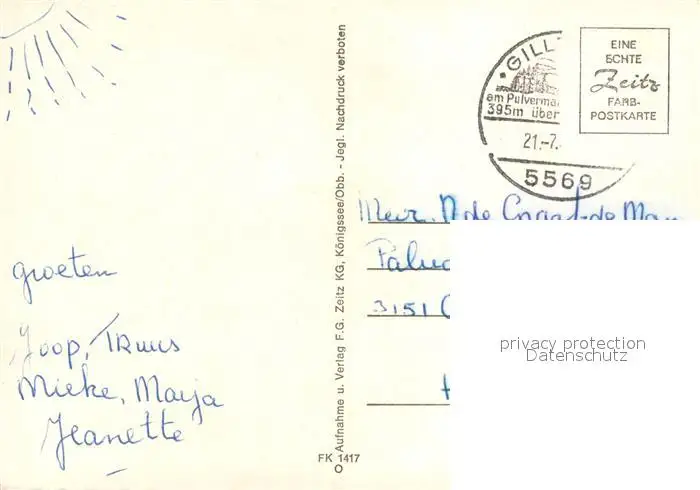 groeten
Joop, Truus
Mieke, Marja
Jeanette
Aufnahme u. Verlag F.G. Zeitz KG, Königssee/Obb. - Jegl. Nachdruck verboten
FK 1417
GILL
am Pulverma
395m über
21.-7.
5569
EINE
ECHTE
Zeitz
FARB-
POSTKARTE
Mevr. de
3151
privacy protection
Datenschutz